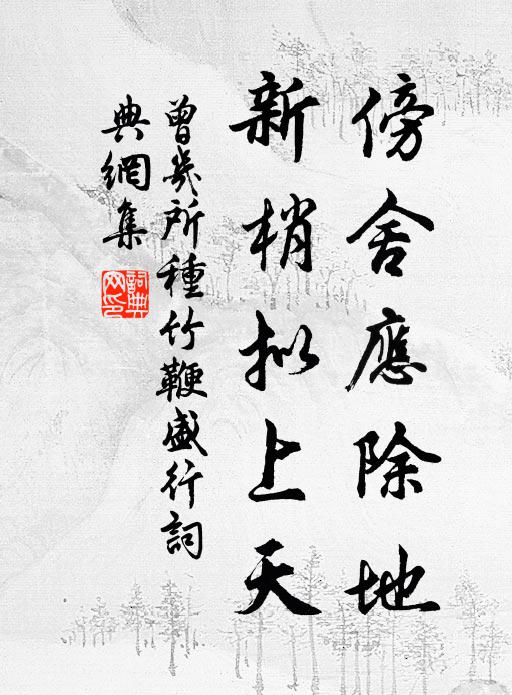 傍舍應除地
新梢拟上天
曾幾所種竹鞭盛行詞
典網集
詞典
网印